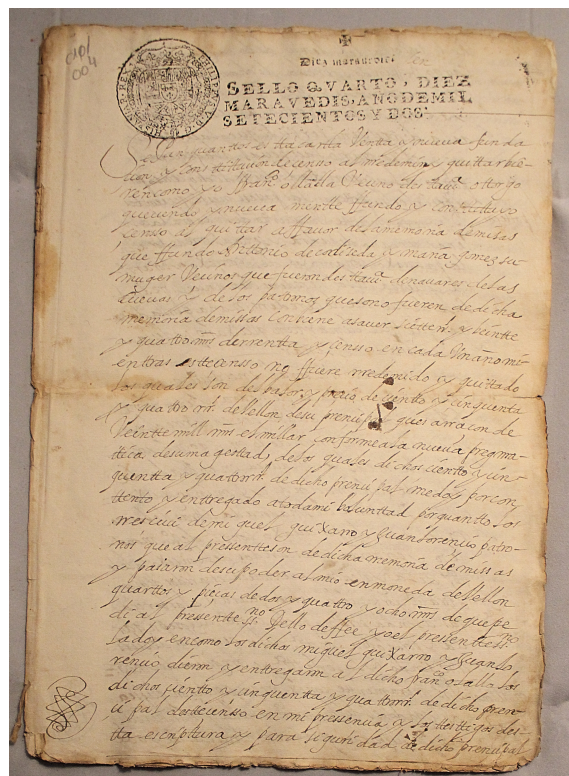 c10/
004
PHILIPPVS V D G
HISPANIAR REX
Diez maravedis
SELLO QVARTO, DIEZ
MARAVEDIS, AÑO DE MIL
SETECIENTOS Y DOS.
Sepan quantos esta cartta Ventta y nueva funda
cion y constittucion de censso al rredemir y quittar bie
ren como yo franco salla Vecino desta otorgo
que vendo y nueva mentte ffundo y constittuyo
censo al quittar a ffavor de la memoria de misas
que ffundo de cortteda y maria gomez su
muger Vecinos que fueron desta de navares de las
cuevas y de los pattronos que son o fueren de dicha
memoria de missas conviene a saver siette rs y veintte
y quattro mrs de rrentta y censso en cada Un ano mi
enttras estte censso no ffuere rredemido y quittado
los quales son de balor y precio de cientto y cinquenta
y quattro rrs de Vellon de su prencipal que s a rracon de
Veintte mill mrs el millar conforme a la nueva pregma
ttica de su magestad, de los quales dichos cientto y cin
quentta y quattro rrs de dicho prencipal me doy por con
ttentto y enttregado a toda mi boluntad por quantto los
rrescivi de miguel guixarro y Juan lorencio patro
nos que al pressentte son de dicha memoria de missas
y passaron de su poder al mio en moneda de bellon
quarttos y piecas de dos y quattro y ocho mrs de que pe
di al pressentte ssno dello de ffee y yo el pressentte ssno
la doy en como los dichos miguel guixarro y Juan lo
rencio dieron y enttregaron al dicho franco salla los
dichos cientto y cinquentta y quattro rrs de dicho pren
cipal destte censso en mi pressencia y los testtigos des
tta escripttura y para siguridad de dicho prencipal